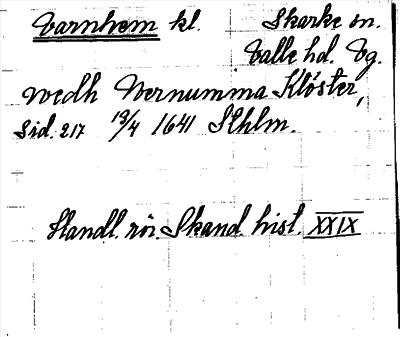 Varnhem kl. Skarke sn.
Valle hd. Vg.
wedh Wernumma Klöster,
Sid. 217 13/4 1641 Sthlm.
Handl. rör. Skand. hist. XXIX